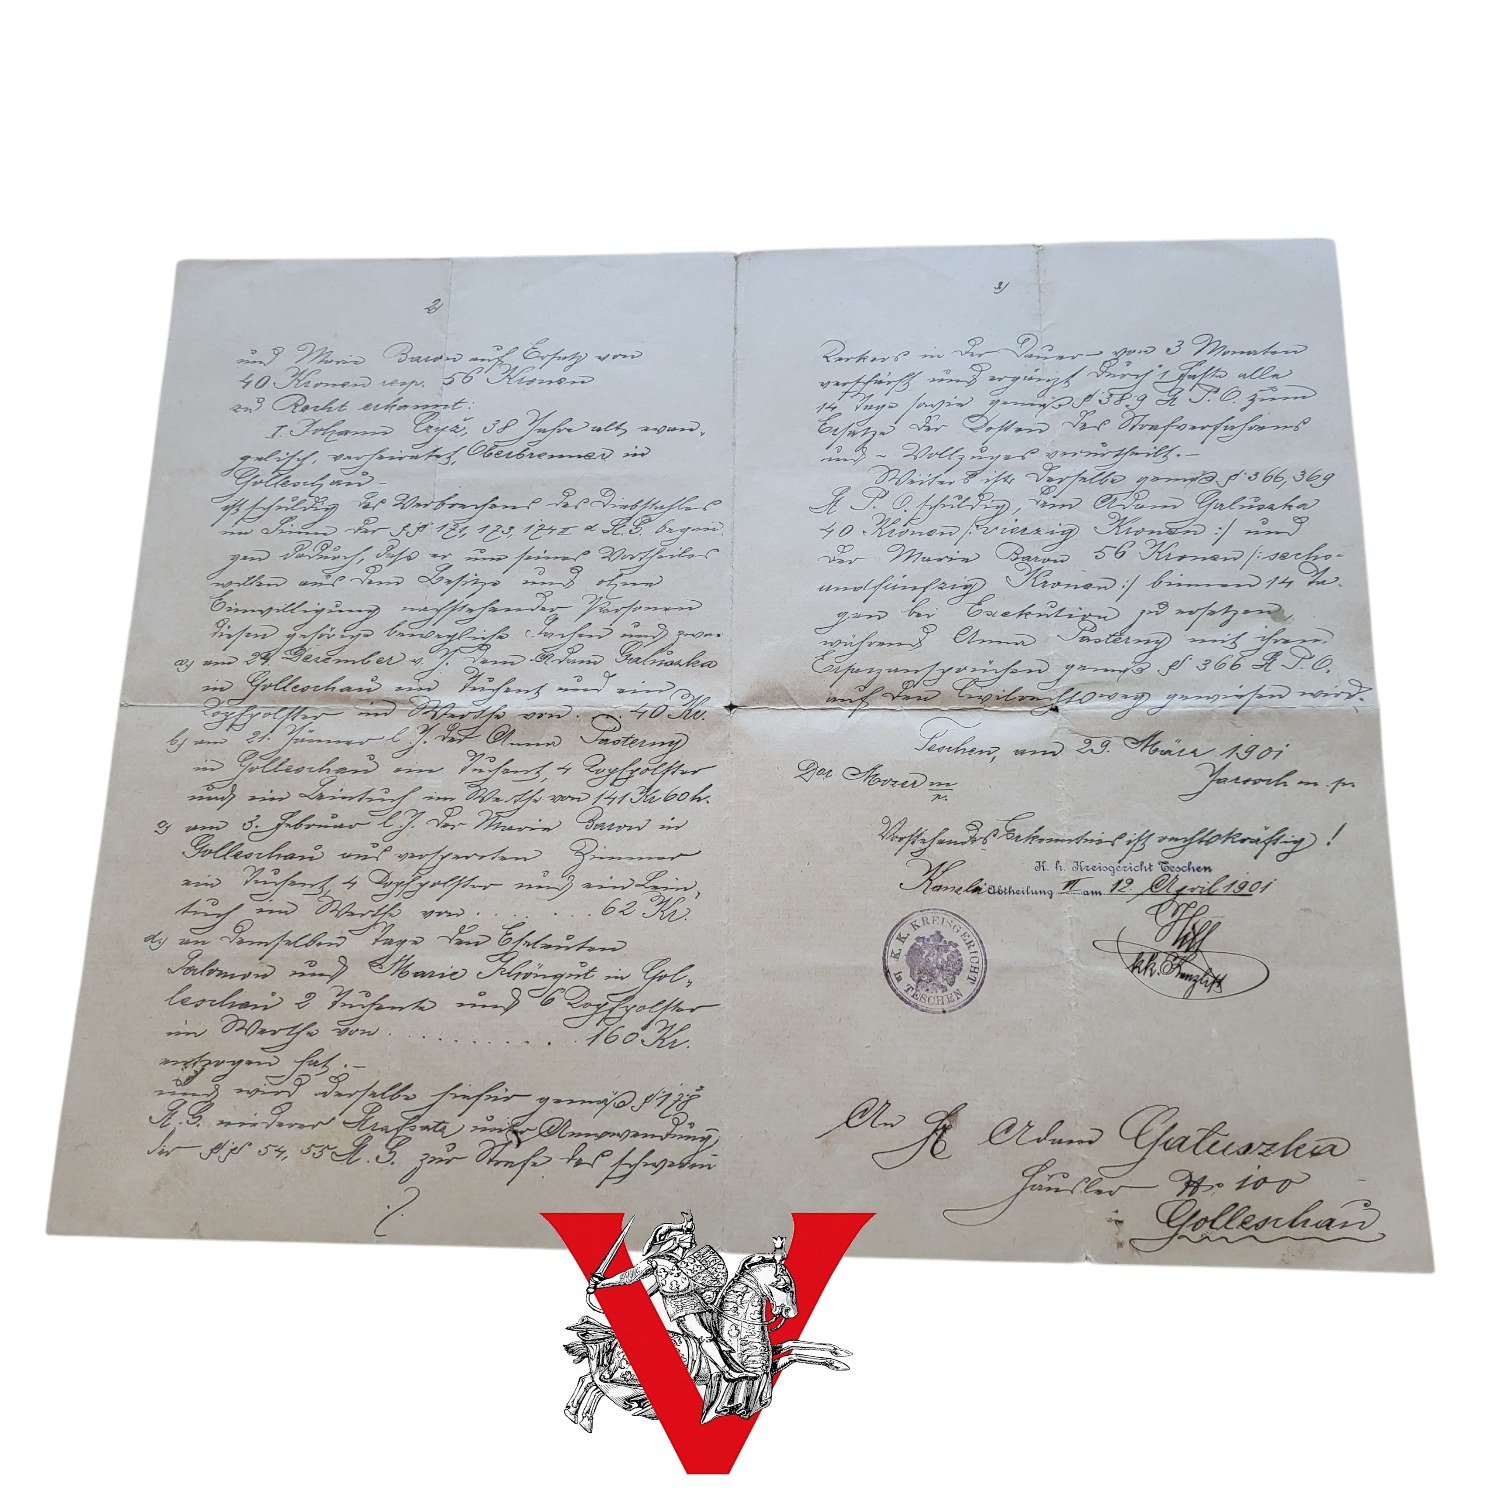 2)
und Marie Baron auf Ersatz von
40 Kronen resp. 56 Kronen
zu Recht erkannt:
I. Johann 38 Jahre alt, evan-
gelisch, verheiratet, Oberbrenner in
Golleschau
ist schuldig des Verbrechens des Diebstahles
im Sinne der §§ 171, 173, 174 II d St. G. began-
gen dadurch, daß er um seines Vortheiles
willen aus dem Besitze und ohne
Einwilligung nachstehender Personen
diesen gehörige bewegliche Sachen und zwar
a) am 24. Dezember v. J. dem Adam Galuszka
in Golleschau ein Tuchent und ein
Kopfpolster im Werthe von . . . 40 Kr.
b) am 21. Jänner l. J. der Anna Pasterny
in Golleschau ein Tuchent, 4 Kopfpolster
und ein Leintuch im Werthe von 141 Kr 60 h.
c) am 3. Februar l. J. der Marie Baron in
Golleschau aus versperrten Zimmer
ein Tuchent, 4 Kopfpolster und ein Lein-
tuch im Werthe von . . . . . . 62 Kr.
d) an demselben Tage den Eheleuten
Salomon und Marie Schöngut in Gol-
leschau 2 Tuchente und 6 Kopfpolster
im Werthe von . . . . . . . . . . . 160 Kr.
entzogen hat. –
und wird derselbe hiefür gemäß § 178
St. G. niederer Strafsatz unter Anwendung
der §§ 54, 55 St. G. zur Strafe des schweren
./.
3)
Kerkers in der Dauer von 3 Monaten
verschärft und ergänzt durch 1 Faste alle
14 Tage sowie gemäß § 389 St. P. O. zum
Ersatze der Kosten des Strafverfahrens
und – Vollzuges verurtheilt. –
Weiters ist derselbe gemäß § 366, 369
St. P. O. schuldig, dem Adam Galuszka
40 Kronen /: vierzig Kronen :/ und
der Marie Baron 56 Kronen /: sechs-
undfünfzig Kronen :/ binnen 14 Ta-
gen bei Exekution zu ersetzen,
während Anna Pasterny mit ihren
Ersatzansprüchen gemäß § 366 St. P. O.
auf den Civilrechtsweg gewiesen wird.
Teschen, am 29. März 1901
Der Mozer m/p. Jarosch m. p.
Vorstehendes Erkenntnis ist rechtskräftig!
K. k. Kreisgericht Teschen
Kanzlei Abtheilung II am 12. April 1901
K. K. KREISGERICHT in TESCHEN
kk. Kanzlist
An H. Adam Galuszka
Häusler Nr. 100
Golleschau
V